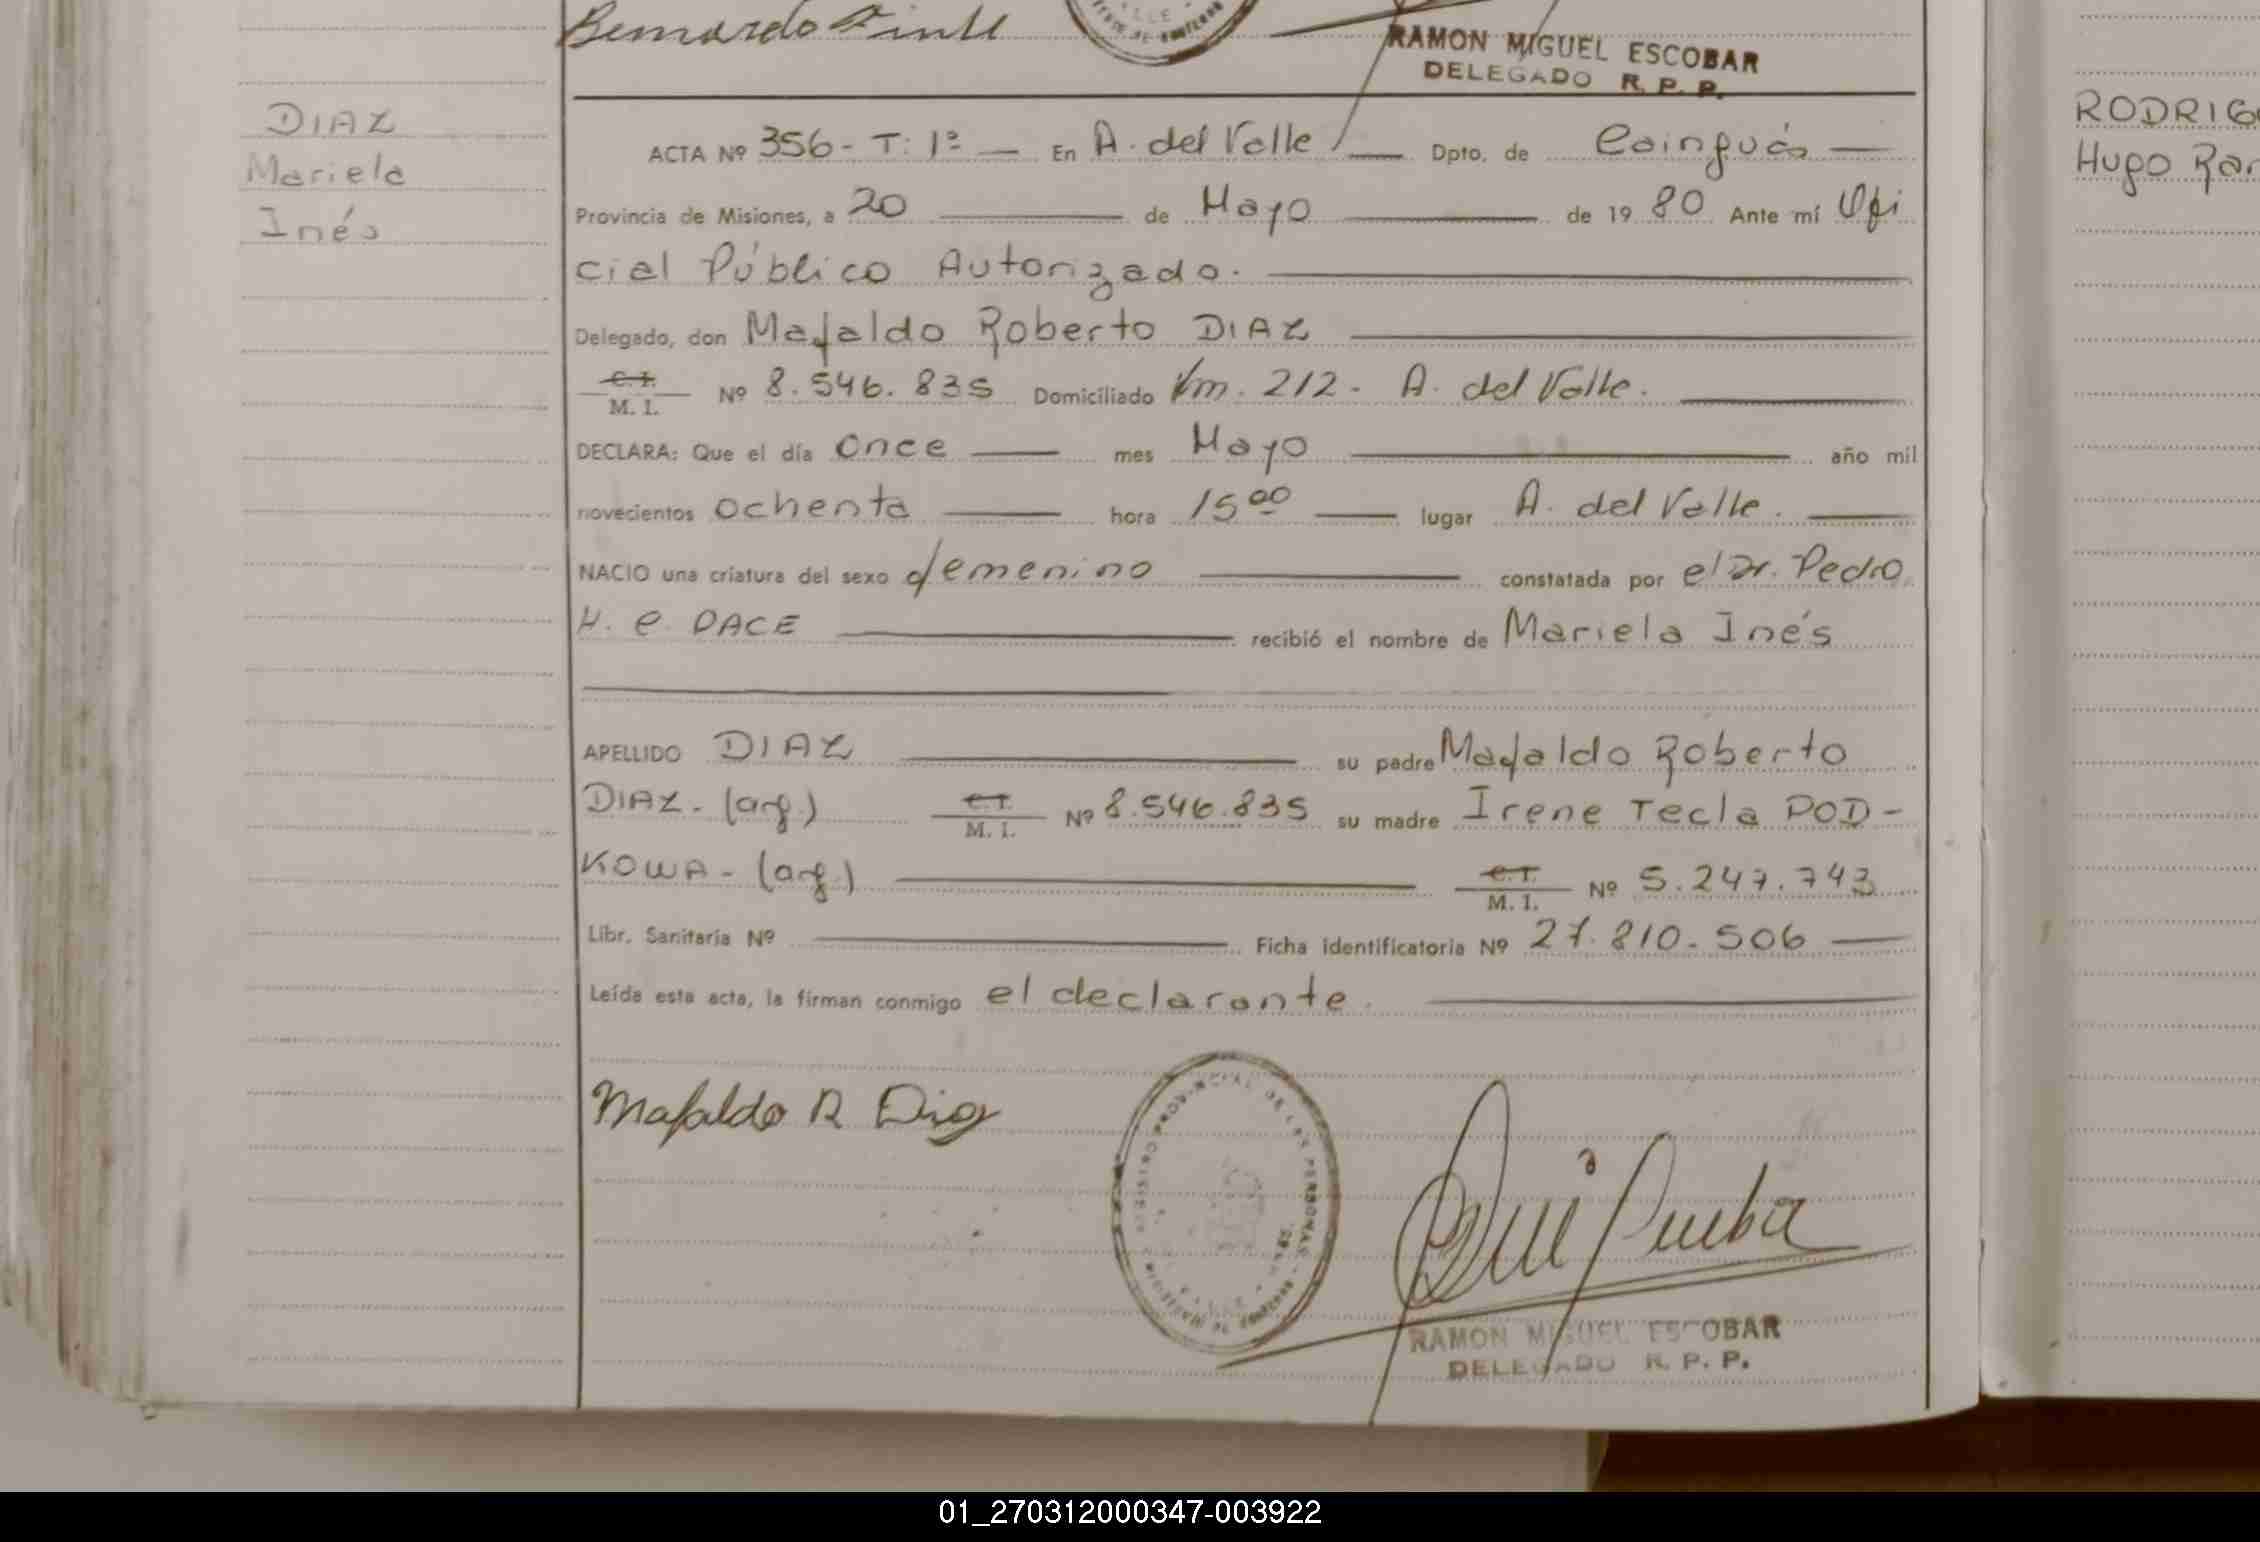 Bernardo
RAMON MIGUEL ESCOBAR
DELEGADO R. P. P.
DIAZ
Mariela
Inés
ACTA Nº 356 - T: 1º — En A. del Valle — Dpto. de Cainguás —
Provincia de Misiones, a 20 — de Mayo — de 1980 Ante mí Ofi
cial Público Autorizado. —
Delegado, don Mafaldo Roberto DIAZ —
C. I.
M. I. Nº 8.546.835 Domiciliado Km. 212 - A. del Valle. —
DECLARA: Que el día once — mes Mayo — año mil
novecientos ochenta — hora 15 00 — lugar A. del Valle. —
NACIO una criatura del sexo femenino — constatada por el Dr. Pedro
H. C. DACE — recibió el nombre de Mariela Inés
APELLIDO DIAZ — su padre Mafaldo Roberto
DIAZ - (arg.) C. I. M. I. Nº 8.546.835 su madre Irene Tecla POD-
KOWA - (arg.) — C. I. M. I. Nº 5.247.743
Libr. Sanitaria Nº — Ficha identificatoria Nº 27.810.506 —
Leída esta acta, la firman conmigo el declarante. —
Mafaldo R Diaz
REGISTRO PROVINCIAL DE LAS PERSONAS
VALLE
MINISTERIO DE GOBIERNO
RAMON MIGUEL ESCOBAR
DELEGADO R. P. P.
RODRIG
Hugo Ra
01_270312000347-003922